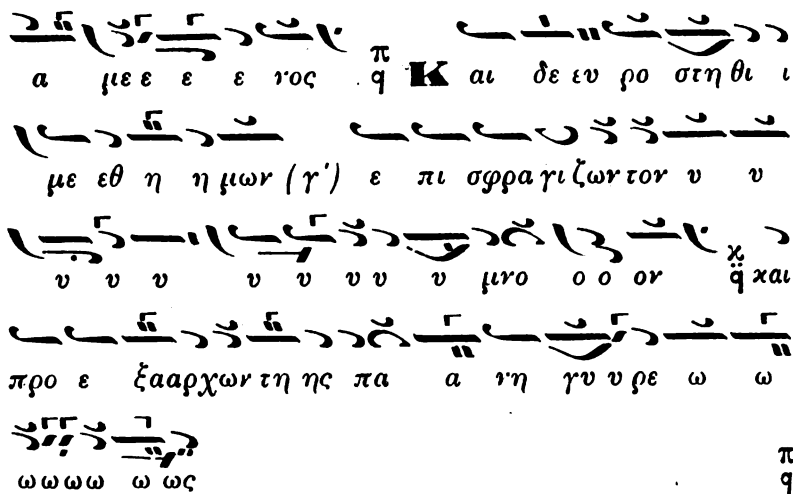 α με ε ε ε νος π q Και δε ευ ρο στη θι ι
με εθ η η μων (γ') ε πι σφρα γι ζων τον υ υ
υ υ υ υ υ υ υ υ μνο ο ο ον κ q̈ και
προ ε ξααρχων τη ης πα α νη γυ υ ρε ω ω
ω ω ω ω ω ως π q